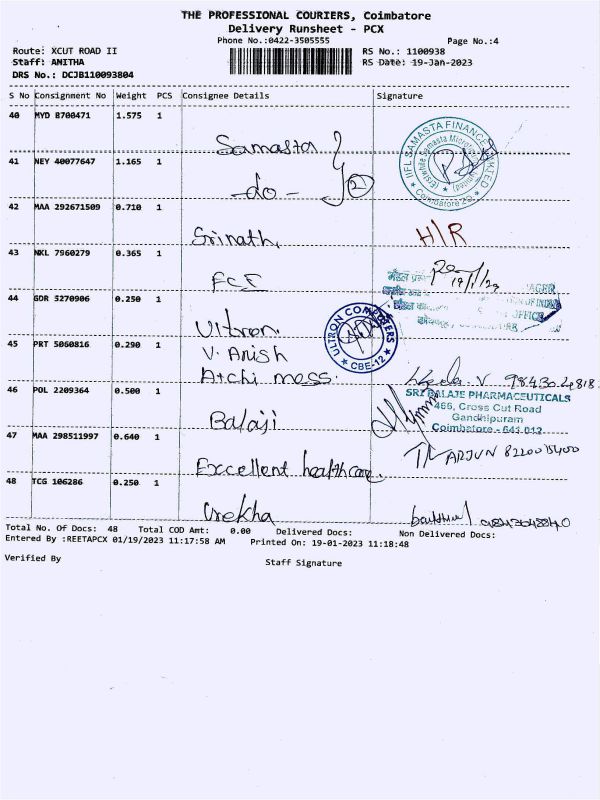 THE PROFESSIONAL COURIERS, Coimbatore
Delivery Runsheet - PCX
Phone No.:0422-3505555
Page No.:4
Route: XCUT ROAD II
RS No.: 1100938
Staff: ANITHA
RS Date: 19-Jan-2023
DRS No.: DCJB110093804
S No Consignment No Weight PCS Consignee Details Signature
40 MYD 8700471 1.575 1
Samasta
IIFL SAMASTA FINANCE LIMITED
Coimbatore
41 NEY 40077647 1.165 1
-do- 2
42 MAA 292671509 0.710 1
Srinath,
H/R
43 NKL 7960279 0.365 1
FCI
19/1/23
44 GDR 5270906 0.250 1
Ultron.
ULTRON COMPUTERS
CBE-12
45 PRT 5060816 0.290 1
V. Anish
Atchi mess.
V 98430
46 POL 2209364 0.500 1
Balaji
SRI BALAJE PHARMACEUTICALS
466, Cross Cut Road
Gandhipuram
Coimbatore - 641 012
47 MAA 298511997 0.640 1
Excellent healthcare.
ARJUN
48 TCG 106286 0.250 1
Urekha
Total No. Of Docs: 48 Total COD Amt: 0.00 Delivered Docs: Non Delivered Docs:
Entered By :REETAPCX 01/19/2023 11:17:58 AM Printed On: 19-01-2023 11:18:48
Verified By
Staff Signature